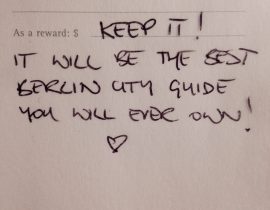 As a reward: $ KEEP IT!
IT WILL BE THE BEST
BERLIN CITY GUIDE
YOU WILL EVER OWN!